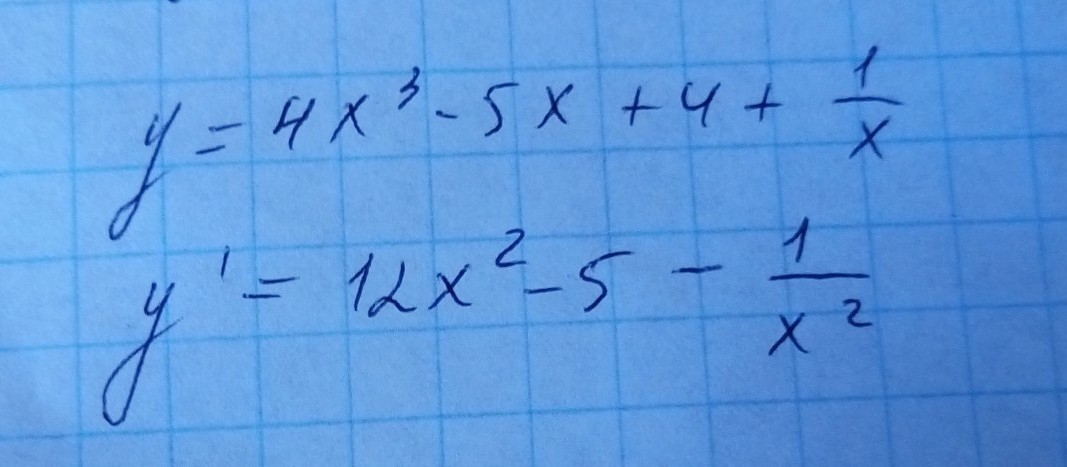 y = 4x³ - 5x + 4 + 1/x
y' = 12x² - 5 - 1/x²